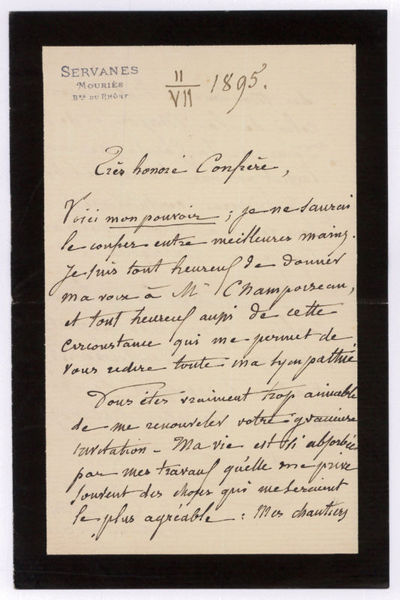 SERVANES
MOURIÈS
Bes DU RHÔNE
11
VII 1895.
Très honoré Confrère,
Voici mon pouvoir ; je ne saurai
le confier entre meilleures mains.
Je suis tout heureux de donner
ma voix à Mr Champoiseau,
et tout heureux aussi de cette
circonstance qui me permet de
vous redire toute ma sympathie
Vous êtes vraiment trop aimable
de me renouveler votre gracieuse
invitation - Ma vie est si absorbée
par mes travaux qu'elle me prive
souvent des choses qui me seraient
le plus agréable : Mes chantiers